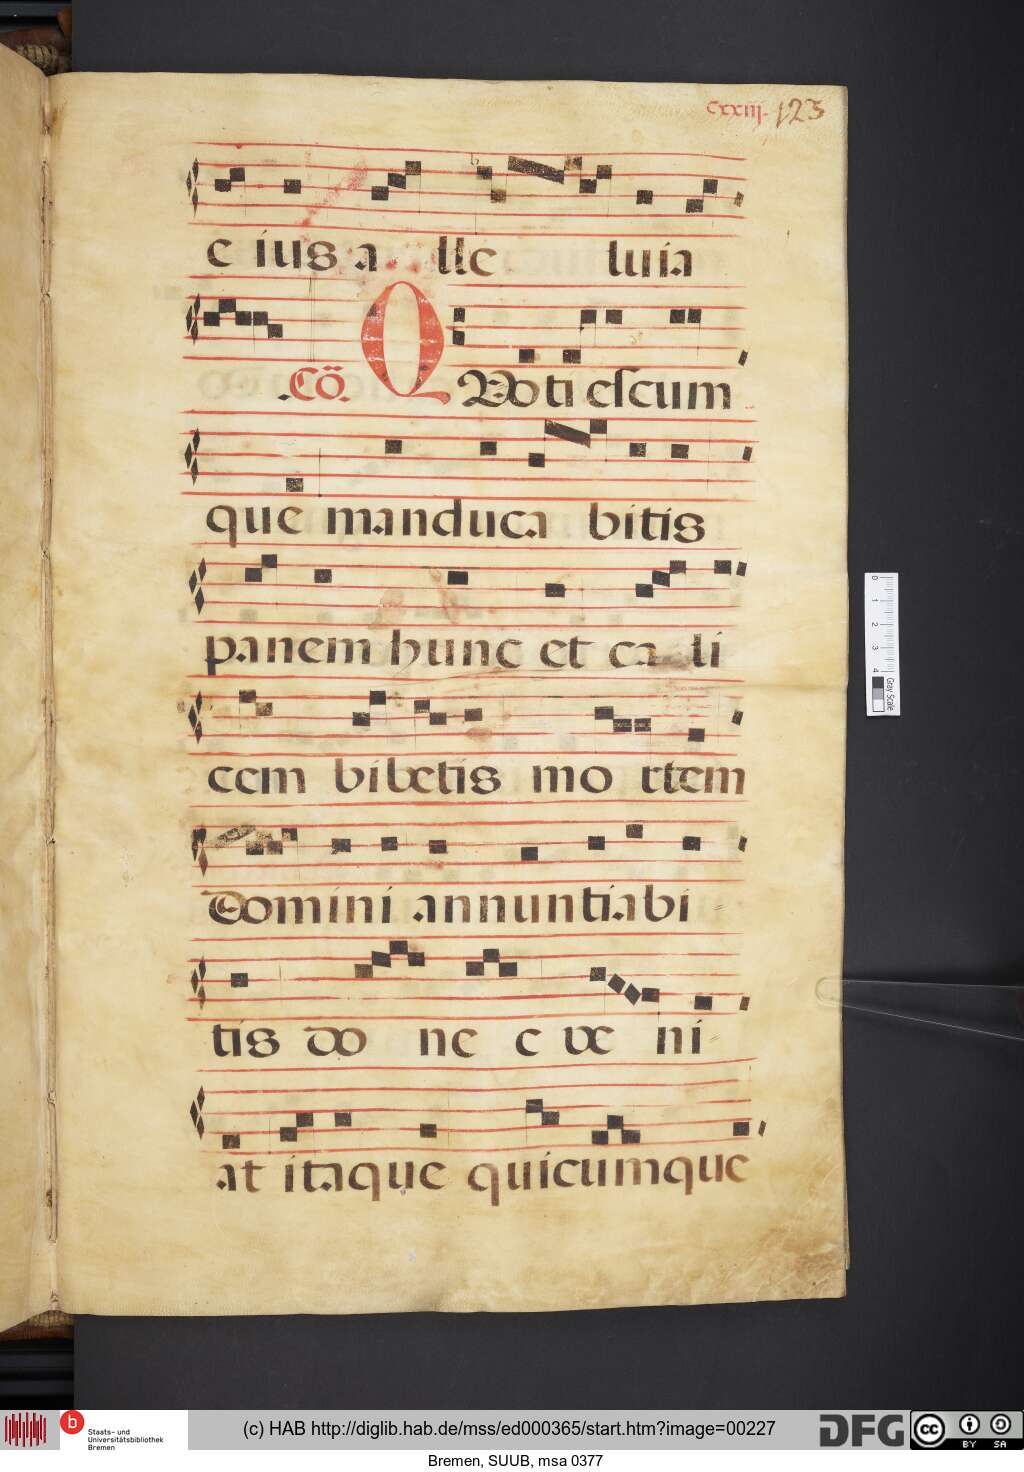 cxxiij. 123
e ius a lle luia
.Cō. Quoti escum
que manduca bitis
panem hunc et ca li
cem bibetis mo rtem
Domini annuntiabi
tis do ne c ve ni
at itaque quicumque
0 1 2 3 4
Gray Scale
b Staats- und
Universitätsbibliothek
Bremen
(c) HAB http://diglib.hab.de/mss/ed000365/start.htm?image=00227
DFG
cc BY SA
Bremen, SUUB, msa 0377